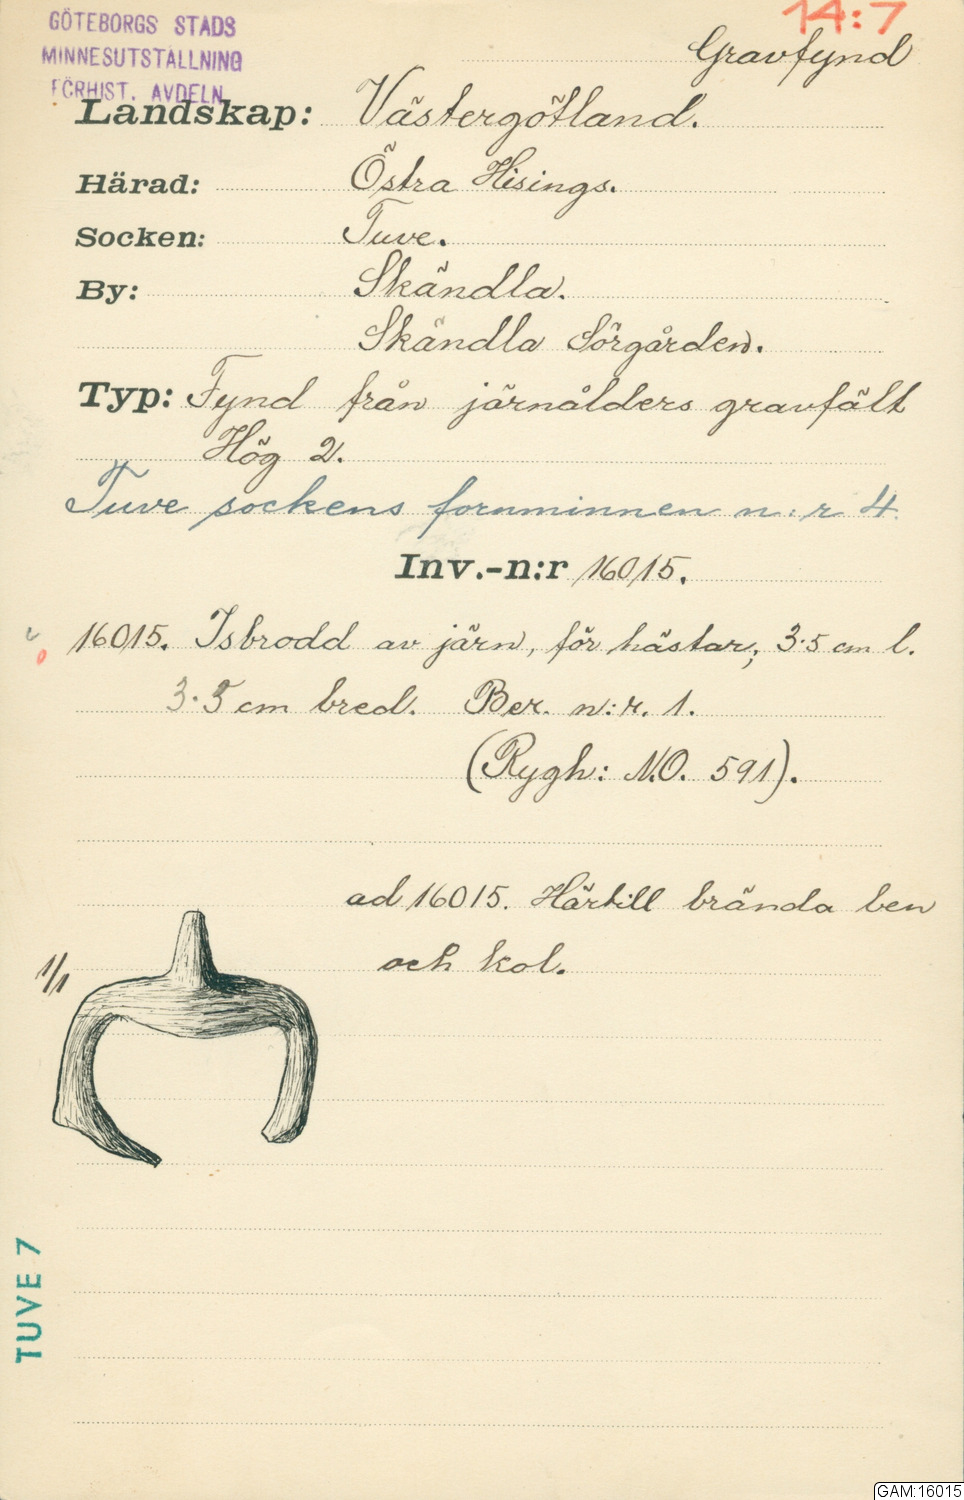 GÖTEBORGS STADS
MINNESUTSTÄLLNING
FÖRHIST. AVDELN.
14:7
Gravfynd
Landskap: Västergötland.
Härad: Östra Hisings.
Socken: Tuve.
By: Skändla.
Skändla Sörgården.
Typ: Fynd från järnålders gravfält
Hög 2.
Tuve sockens fornminnen n:r 4.
Inv.-n:r 16015.
16015. Isbrodd av järn, för hästar; 3.5 cm l.
3.5 cm bred. Ber. n:r. 1.
(Rygh: N.O. 591).
ad 16015. Härtill brända ben
och kol.
1/1
TUVE 7
GAM:16015